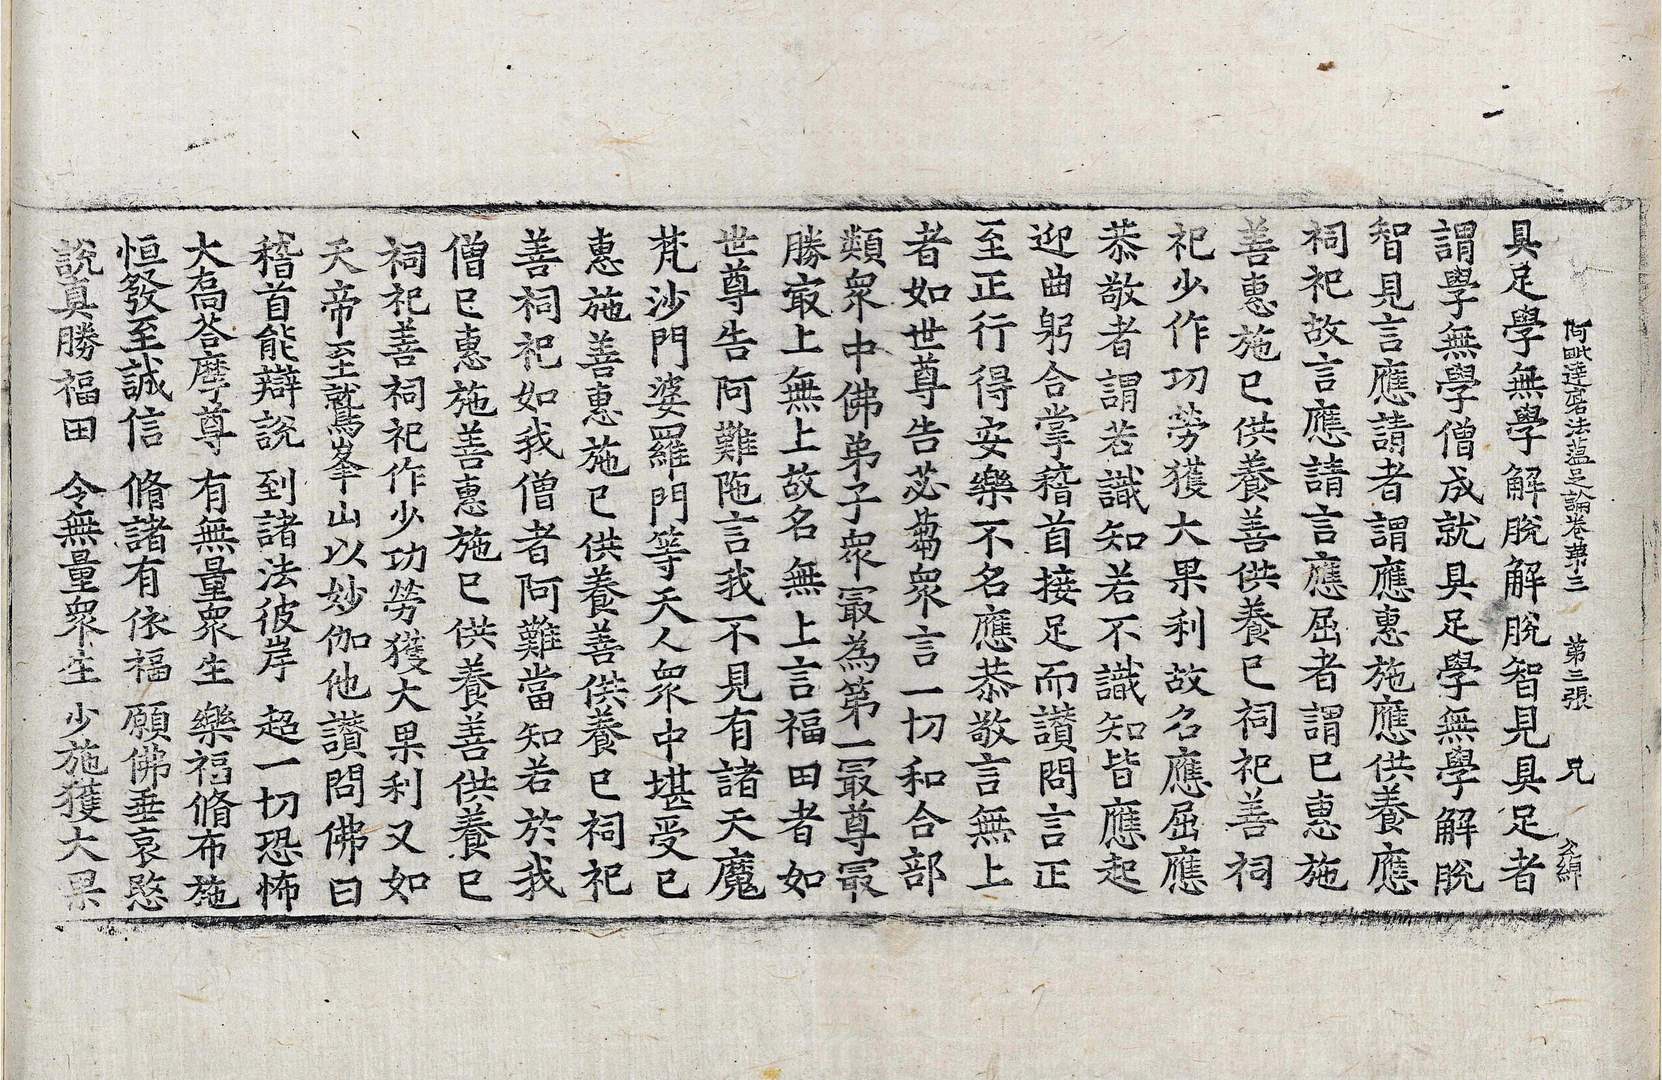 阿毗達磨法蘊足論卷第三 第三張 兄
具足學無學解脫解脫智見具足者
謂學無學僧成就具足學無學解脫
智見言應請者謂應惠施應供養應
祠祀故言應請言應屈者謂已惠施
善惠施已供養善供養已祠祀善祠
祀少作功勞獲大果利故名應屈應
恭敬者謂若識知若不識知皆應起
迎曲躬合掌稽首接足而讃問言正
至正行得安樂不名應恭敬言無上
者如世尊告苾芻衆言一切和合部
類衆中佛弟子衆㝡為第一㝡尊㝡
勝㝡上無上故名無上言福田者如
世尊告阿難陁言我不見有諸天魔
梵沙門婆羅門等天人衆中堪受已
惠施善惠施已供養善供養已祠祀
善祠祀如我僧者阿難當知若於我
僧已惠施善惠施已供養善供養已
祠祀善祠祀作少功勞獲大果利又如
天帝至鷲峯山以妙伽他讃問佛曰
稽首能辯說 到諸法彼岸 超一切恐怖
大喬荅摩尊 有無量衆生 樂福脩布施
恒發至誠信 脩諸有依福 願佛垂哀愍
說真勝福田 令無量衆生 少施獲大果